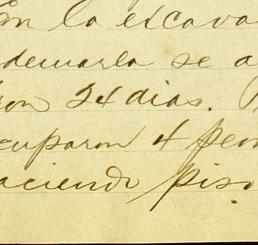 En la excava
demarla se a
ron 24 dias.
cuparon 4 peon
aciendo piso